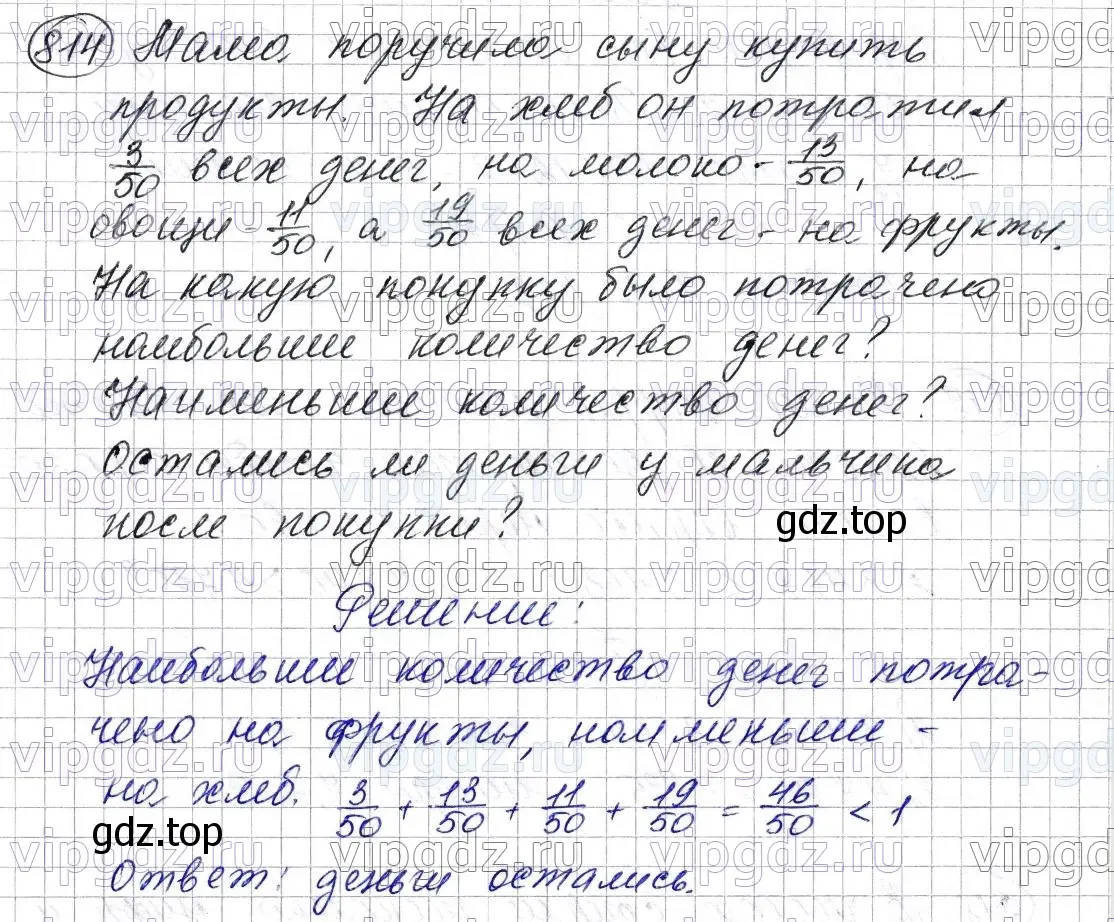 814 Мама поручила сыну купить
продукты. На хлеб он потратил
3/50 всех денег, на молоко - 13/50, на
овощи - 11/50, а 19/50 всех денег - на фрукты.
На какую покупку было потрачено
наибольшее количество денег?
Наименьшее количество денег?
Остались ли деньги у мальчика
после покупки?
gdz.top
Решение:
Наибольшее количество денег потра-
чено на фрукты, наименьшее -
на хлеб. 3/50 + 13/50 + 11/50 + 19/50 = 46/50 < 1
gdz.top
Ответ: деньги остались.
vipgdz.ru